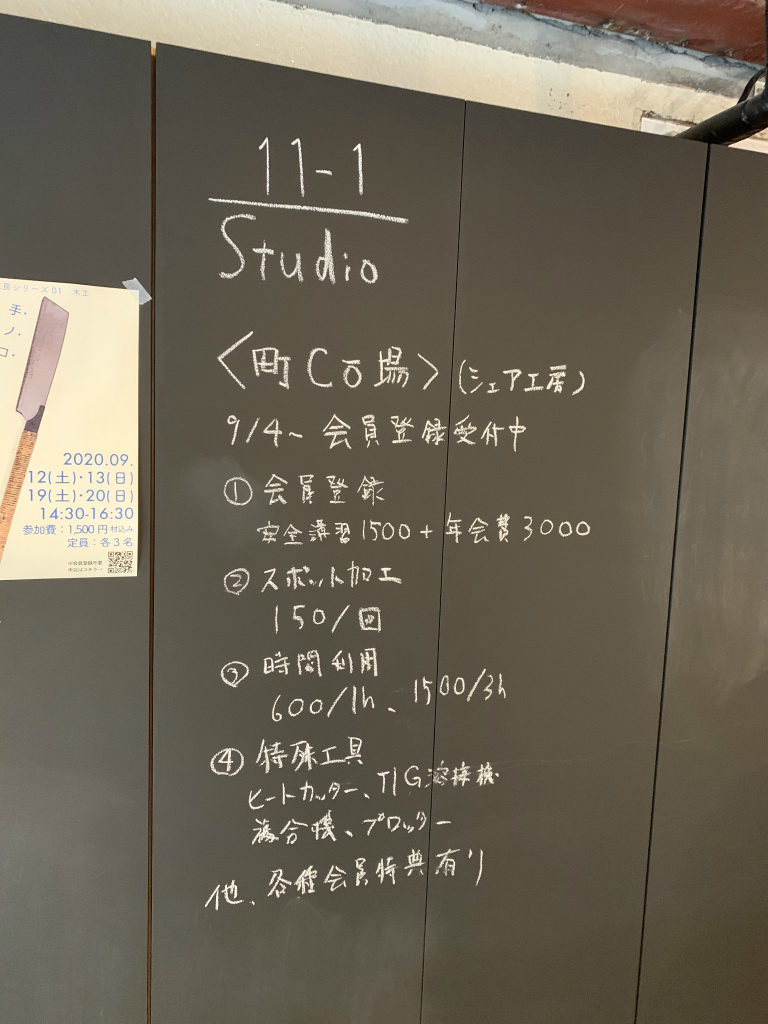 11-1
Studio
〈町Cō場〉(シェア工房)
9/4~ 会員登録受付中
① 会員登録
安全講習1500+年会費3000
② スポット加工
150/回
③ 時間利用
600/1h、1500/3h
④ 特殊工具
ヒートカッター、TIG溶接機
複合機、プロッター
他、各種会員特典有り
房シリーズ01 木工
手.
ノ.
コ.
2020.09.
12(土)・13(日)
19(土)・20(日)
14:30-16:30
参加費:1,500円 材込み
定員:各3名